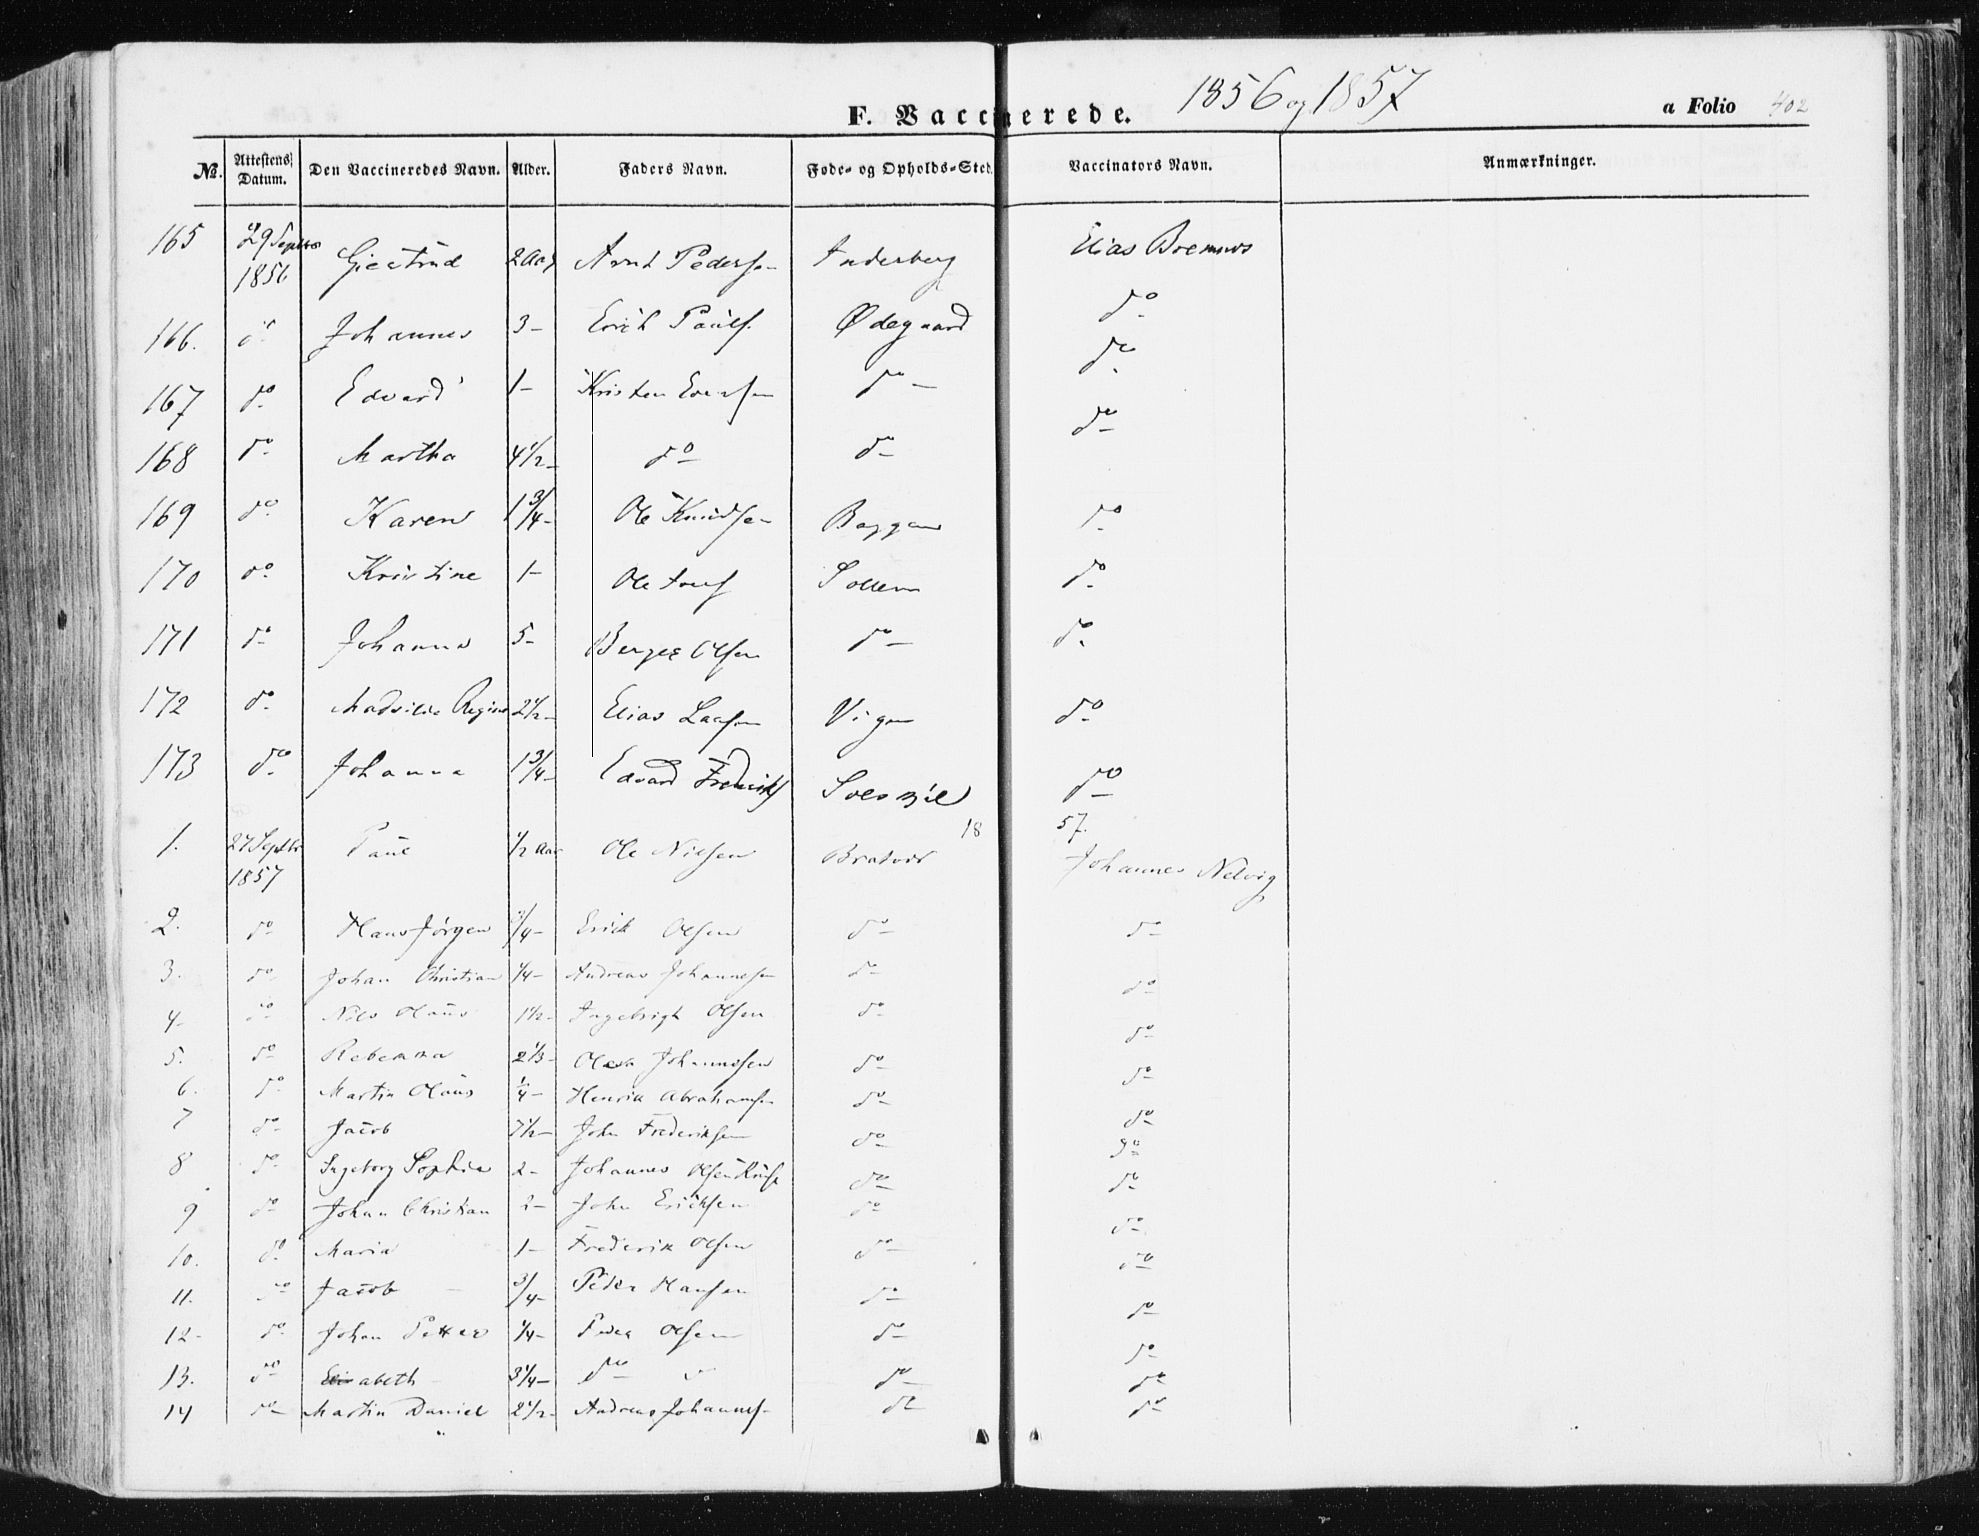 F. Vaccinerede. 1856 og 1857 a Folio 402
№. Attestens Datum. Den Vaccineredes Navn. Alder. Faders Navn. Føde- og Opholds-Sted. Vaccinators Navn. Anmærkninger.
165 29 Septbr 1856 Giertrud 2 Aar Arnt Pedersen Inderberg Elias Bremnes
166. do Johannes 3 - Erich Pauls. Ødegaard do
167 do Edvard 1 - Kristen do - do
168 do Martha 4 1/2 - do do do
169 do Karen 1 3/4 - Ole Knudsen Baggen do
170 do Kristine 1 - Ole Sollem do
171 do Johanna 5 - Berger Olsen do - do
172 do Regine 2 1/2 - Elias Larsen Vigen do
173 do Johanna 1 3/4 - Edvard Frederiks do
1857.
1. 27 Septbr 1857 Paul 1/2 Aar Ole Nilsen Bratvær Johannes Nelvig
2. do Hans Jørgen 3/4 - Erick Olsen do do
3. do Johan Christian 1/4 - Andreas Johannesen do do
4 - do Nils Olaus 1 1/2 - Ingebrigt Olsen do do
5. do Rebekka 2 1/3 - Johannessen do do
6. do Martin Olaus 1/4 - Henrik Abrahamsen do do
7 do Jacob 7 1/2 - John Frederiksen do do
8 do Ingeborg Sophia 2 - Johannes Olsen do do
9 do Johan Christian 2 - John Ericksen do do
10. do Maria 1 - Frederik Olsen do do
11. do Jacob 3/4 - Peder Hansen do do
12 - do Johan Petter 1/4 - Peder Olsen do do
13. do Elisabeth 3 1/4 - do do do
14 do Martin Daniel 2 1/2 - Andreas Johannes. do do